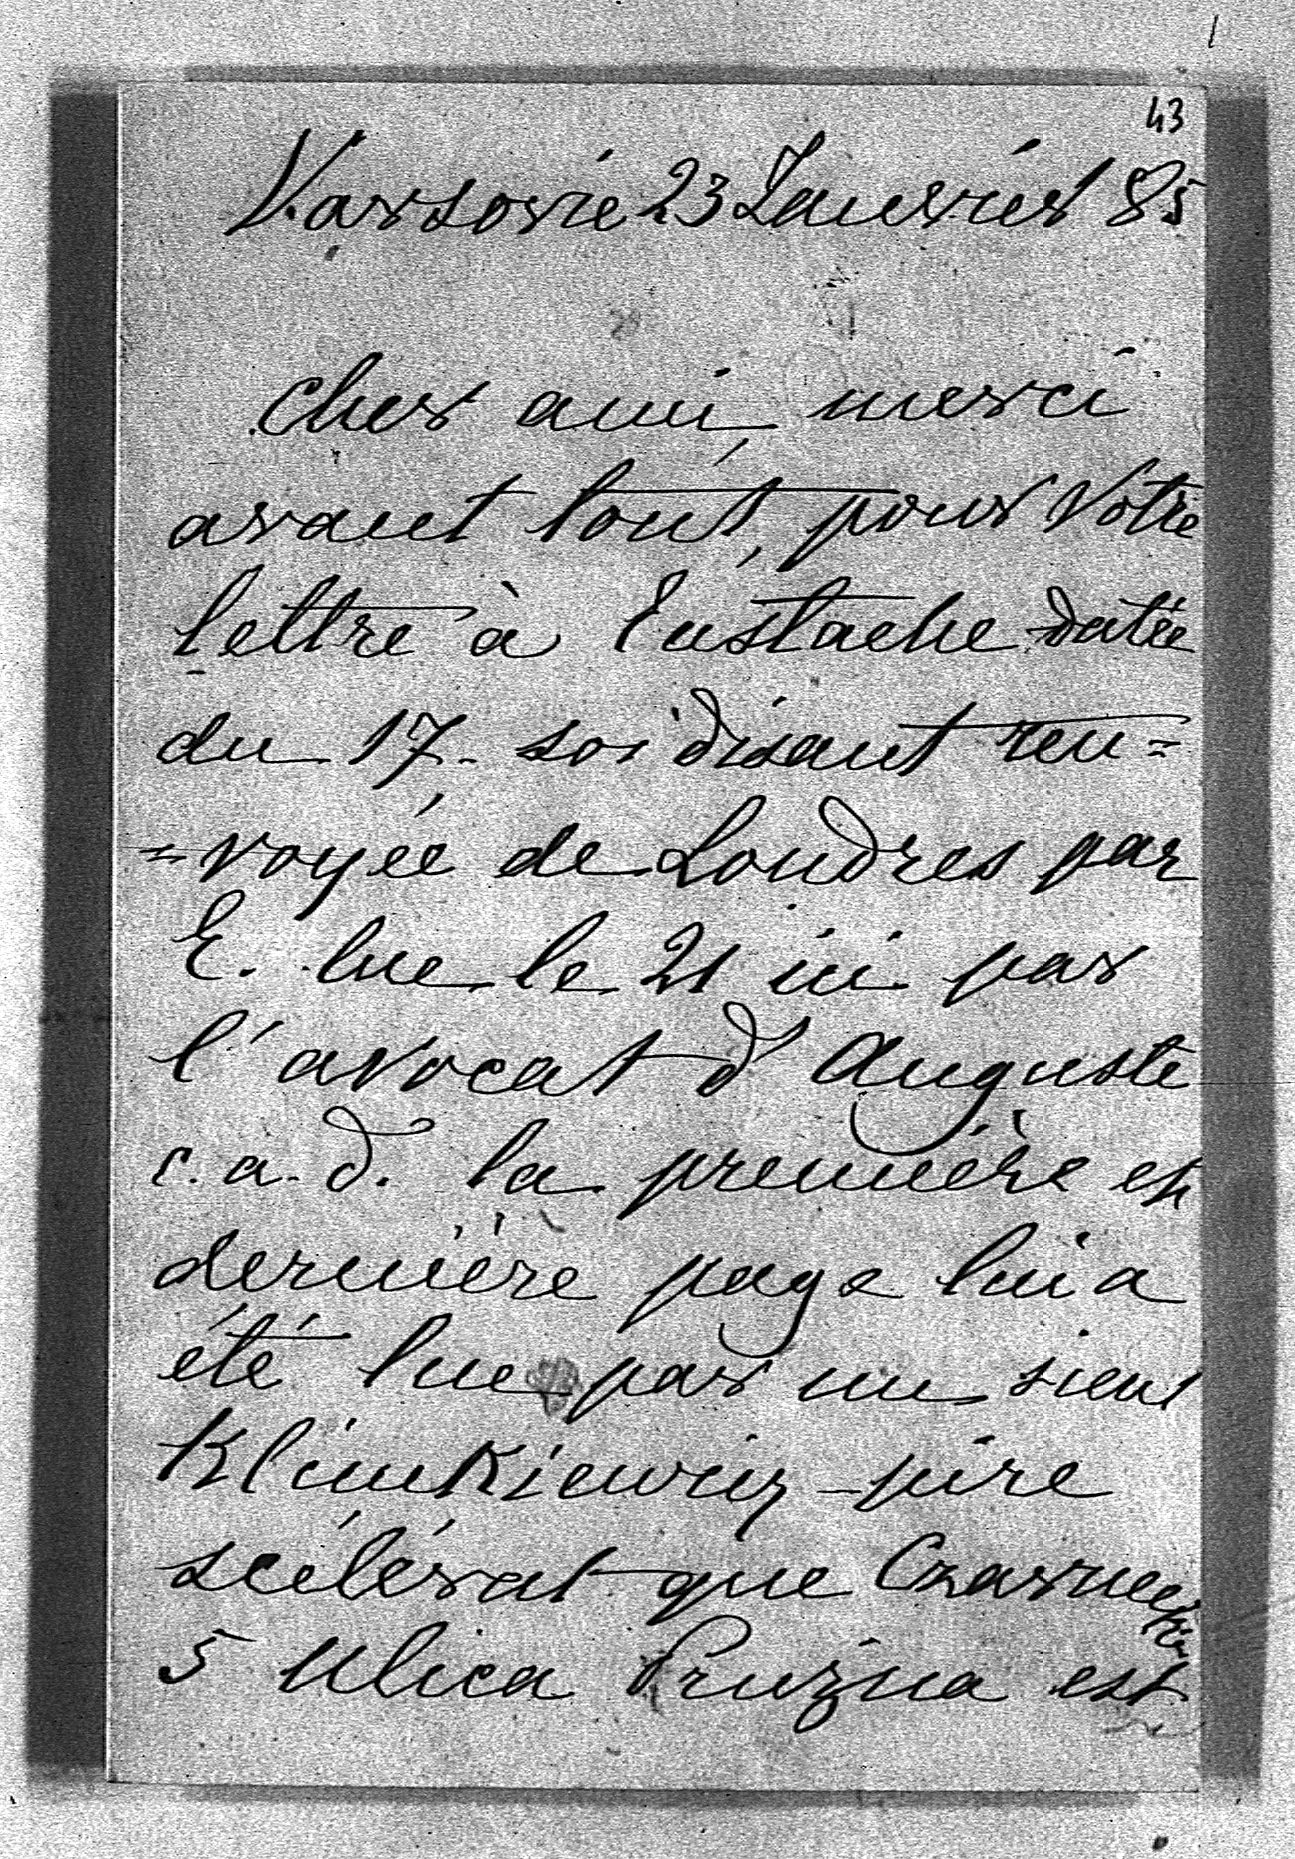 43
Varsovie 23 Janvier 85
Cher ami, merci
avant tout, pour Votre
lettre à Eustache datée
du 17. soi disant ren=
=voyée de Londres par
E. lue le 21 ici par
l'avocat d'Auguste
c.a.d. la première et
dernière page lui a
été lue par un sieur
Klimkiewicz - pire
scélérat que Czarnecki
5 Ulica Pruzna est